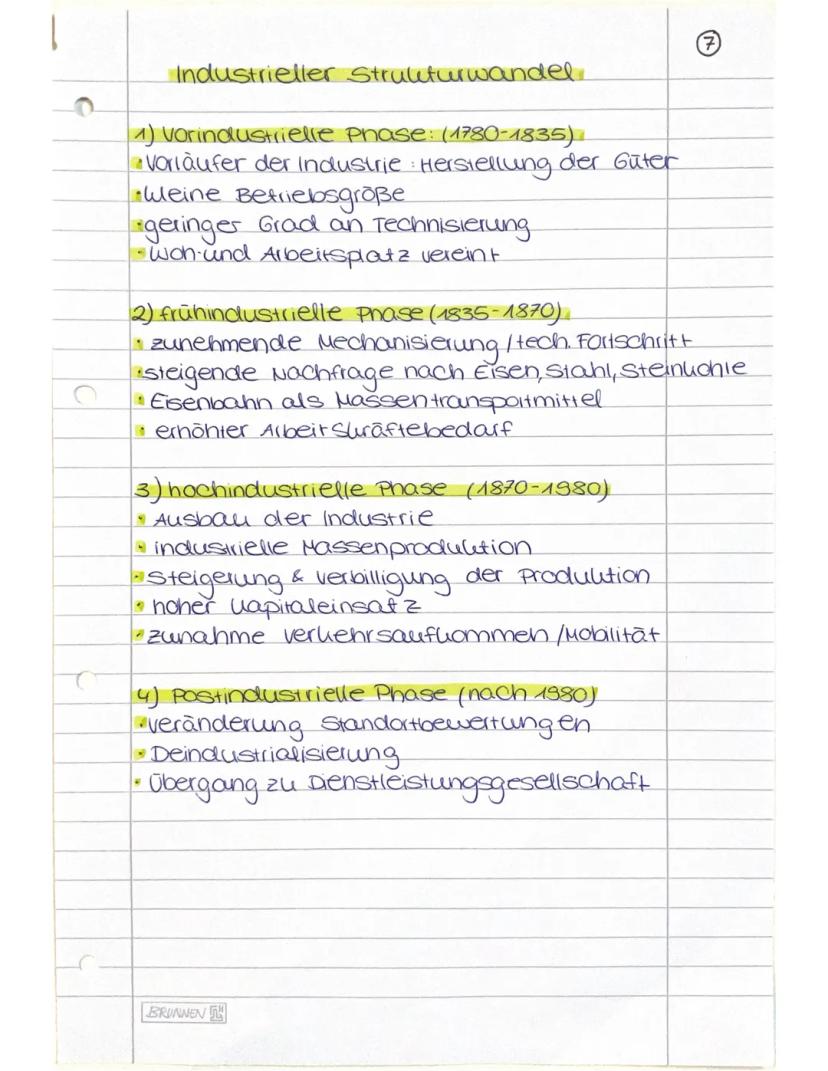 7
Industrieller Strukturwandel
1) Vorindustrielle Phase: (1780-1835)
• Vorläufer der Industrie: Herstellung der Güter
• kleine Betriebsgröße
• geringer Grad an Technisierung
• Woh- und Arbeitsplatz vereint
2) frühindustrielle Phase (1835-1870)
• zunehmende Mechanisierung / tech. Fortschritt
• steigende Nachfrage nach Eisen, Stahl, Steinkohle
• Eisenbahn als Massentransportmittel
• erhöhter Arbeitskräftebedarf
3) hochindustrielle Phase (1870-1980)
• Ausbau der Industrie
• industrielle Massenproduktion
• Steigerung & Verbilligung der Produktion
• hoher Kapitaleinsatz
• zunahme Verkehrsaufkommen / Mobilität
4) Postindustrielle Phase (nach 1980)
• Veränderung Standortbewertungen
• Deindustrialisierung
• Übergang zu Dienstleistungsgesellschaft
BRUNNEN